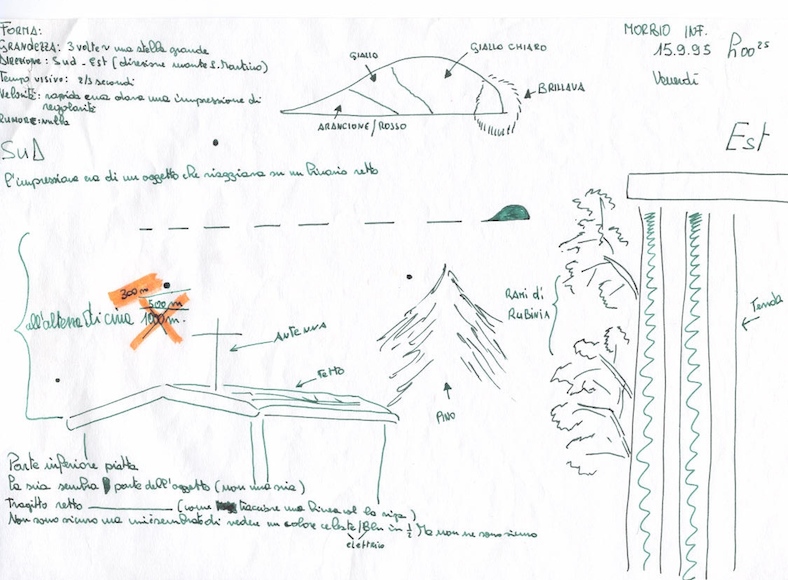 FORMA:
GRANDEZZA: 3 volte ~ una stella grande
Direzione: Sud-Est (direzione monte S. Martino)
Tempo visivo: 2/3 secondi
Velocità: rapida ma dava una impressione di
regolarità
RUMORE: nulla
GIALLO
GIALLO CHIARO
BRILLAVA
ARANCIONE/ROSSO
MORBIO INF.
15.9.95 h00 25
Venerdì
SUD
Est
l'impressione era di un oggetto che viaggiava su un binario retto
300 m
500 m
all'altezza di circa 1000 m.
ANTENNA
TETTO
PINO
RAMI di
RUBINIA
Tenda
Parte inferiore piatta
La scia sembra parte dell'oggetto (non una scia)
Tragitto retto (come tracciare una linea col la riga)
Non sono sicuro ma mi è sembrato di vedere un colore celeste/Blu in 1/2 Ma non ne sono sicuro
elettrico